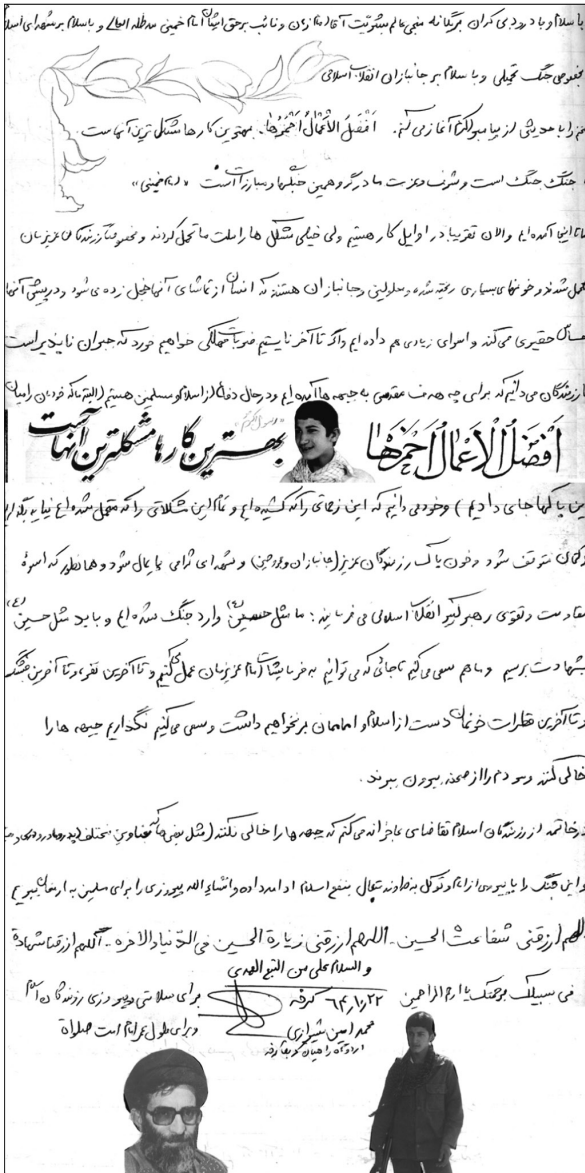 با سلام و با درود بی کران بر یگانه منجی عالم بشریت آقا امام زمان و نائب بر حق ایشان امام خمینی مدظله العالی و با سلام بر شهدای اسلام
بخصوص جنگ تحمیلی و با سلام بر جانبازان انقلاب اسلامی
را با حدیثی از پیامبر اکرم آغاز می کنم. اَفضَلُ الاَعمالِ اَحمَزُها. بهترین کارها مشکل ترین آنهاست
جنگ جنگ است و شرف و عزت ما در گرو همین جنگها و مبارزات است «امام خمینی»
تا اینجا آمده ایم و الان تقریبا در اوایل کار هستیم ولی خیلی مشکل ها را ملت ما تحمل کردند و مخصوصاً رزمندگان عزیزمان
تحمل شدند و خونهای بسیاری ریخته شده و معلولین و جانبازان هستند که انسان از تماشای آنها خجل زده می شود و در پیش آنها
احساس حقیری می کند و اسرای زیادی هم داده ایم و اگر تا آخر نایستیم ضربات مهلکی خواهیم خورد که جبران ناپذیر است
رزمندگان می دانیم که برای چه هدف مقدسی به جبهه ها آمده ایم و در حال دفاع از اسلام و مسلمین هستیم (البته ما که خودمان را میان
اَفضَلُ الاَعمالِ اَحمَزُها
«رسول اکرم»
بهترین کارها مشکلترین آنهاست
این پاکها جای دادیم) و خود می دانیم که این زحماتی را که کشیده ایم و تمام این مشکلاتی را که متحمل شده ایم نباید بگذاریم
متوقف شود و خون پاک رزمندگان عزیز (جانبازان و مجروحین) و شهدای گرامی پایمال شود و همانطور که اسوۀ
مقاومت و تقوی رهبر کبیر انقلاب اسلامی می فرمایند: ما مثل حسین (ع) وارد جنگ شده ایم و باید مثل حسین (ع)
بشهادت برسیم و ما هم سعی می کنیم تا جائی که می توانیم به فرمایشات امام عزیزمان عمل کنیم و تا آخرین نفر و تا آخرین فشنگ
و تا آخرین قطرات خونمان دست از اسلام و اماممان بر نخواهیم داشت و سعی می کنیم نگذاریم جبهه ها را
خالی کنند و مردم را از صحنه بیرون ببرند.
در خاتمه از رزمندگان اسلام تقاضای عاجزانه می کنم که جبهه ها را خالی نکنند (مثل بعضی ها که بعناوین مختلف
و این جنگ را با پیروی از امام و توکل به خداوند متعال بنفع اسلام ادامه داده و انشاءالله پیروزی را برای مسلمین به ارمغان ببریم
اللهم ارزقنی شفاعت الحسین - اللهم ارزقنی زیارة الحسین فی الدنیا و الاخره - اللهم ارزقنا شهادة
فی سبیلک برحمتک یا ارحم الراحمین
و السلام علی من اتبع الهدی
۶۴/۱۰/۲۲ کرفه
محمد امین شیرازی
برای سلامتی و پیروزی رزمندگان اسلام
و برای طول عمر امام امت صلواة